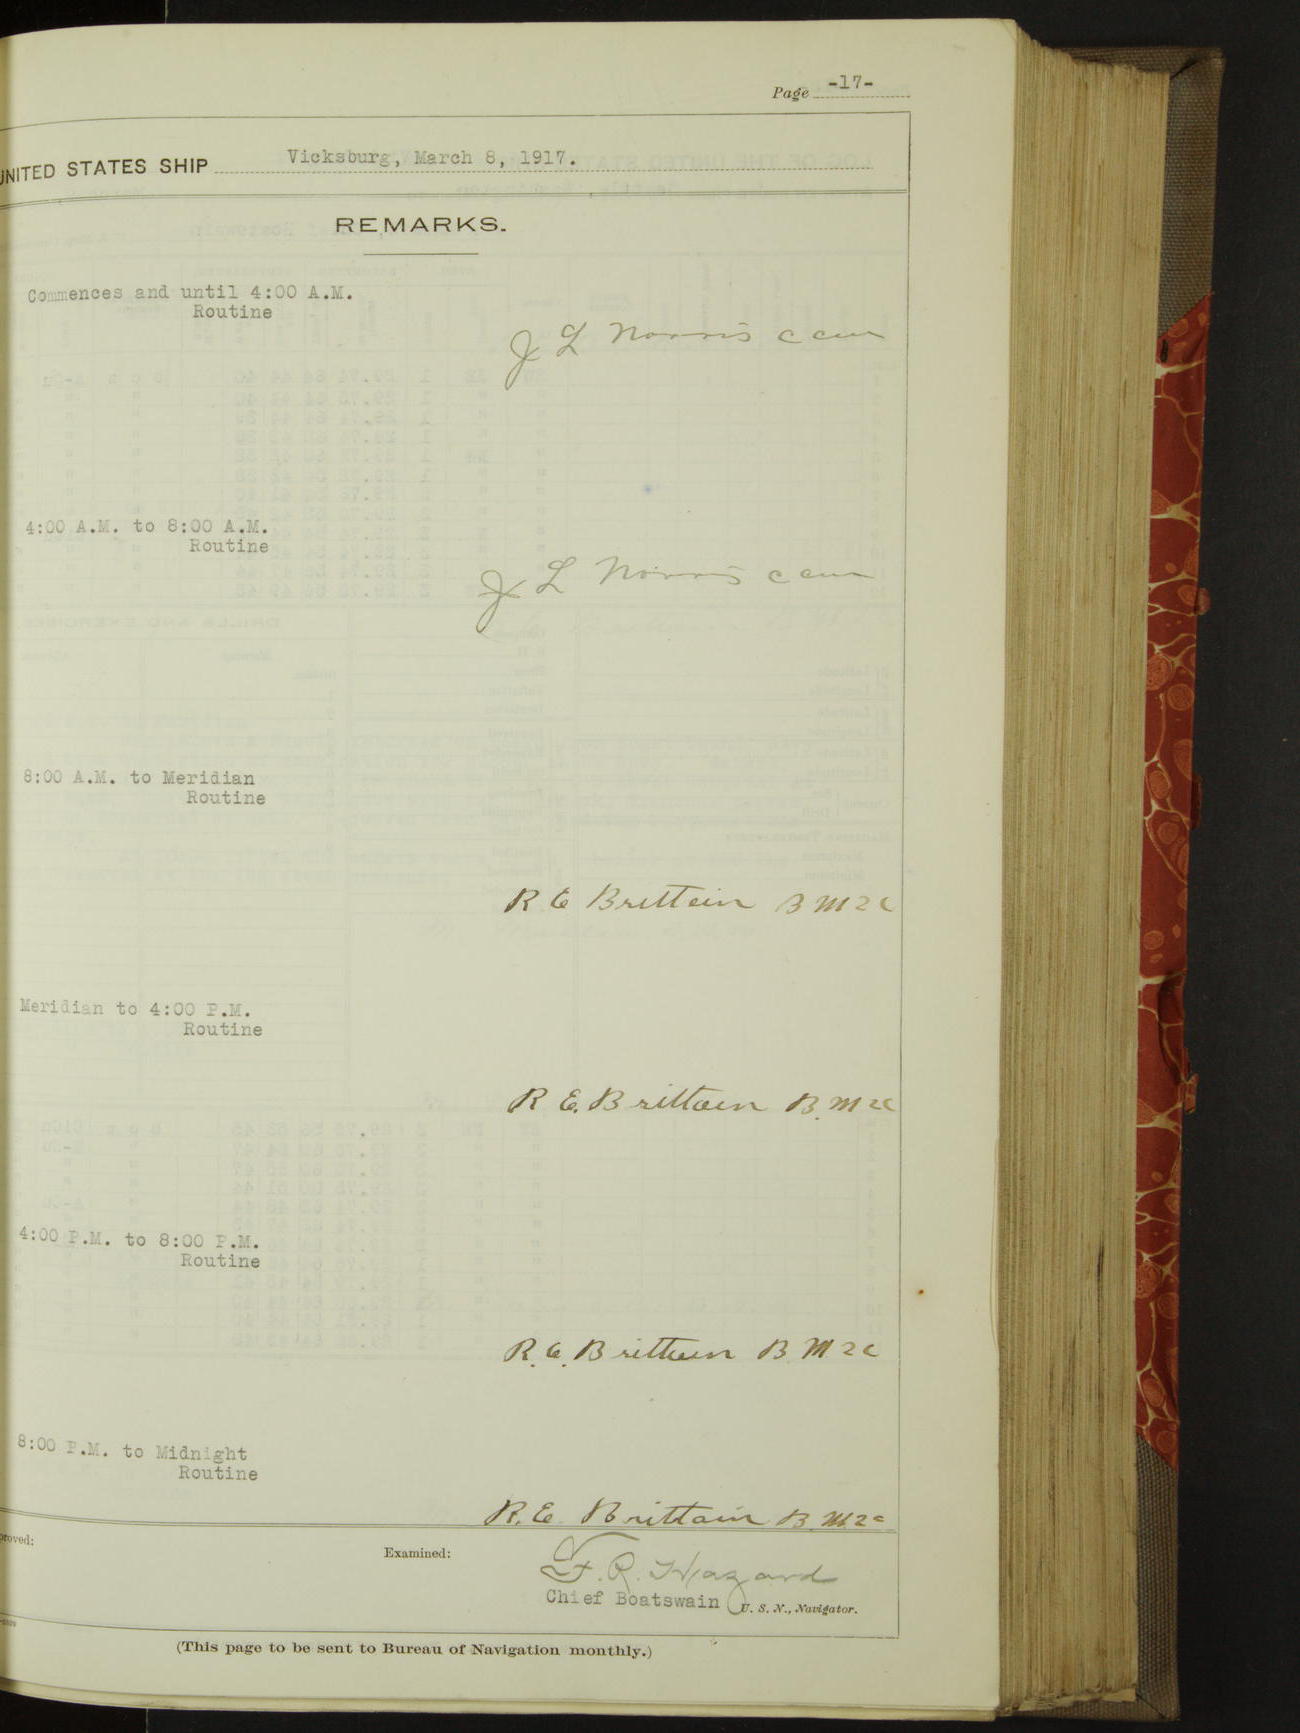 Page -17-
UNITED STATES SHIP Vicksburg, March 8, 1917.
REMARKS.
Commences and until 4:00 A.M.
Routine
J L Norris CCM
4:00 A.M. to 8:00 A.M.
Routine
J L Norris CCM
8:00 A.M. to Meridian
Routine
R E Brittain B M 2 C
Meridian to 4:00 P.M.
Routine
R E. Brittain B. M 2C
4:00 P.M. to 8:00 P.M.
Routine
R. E. Brittain B M 2 C
8:00 P.M. to Midnight
Routine
R. E. Brittain B. M. 2 C
proved:
Examined:
F. R. Hazard
Chief Boatswain U. S. N., Navigator.
(This page to be sent to Bureau of Navigation monthly.)